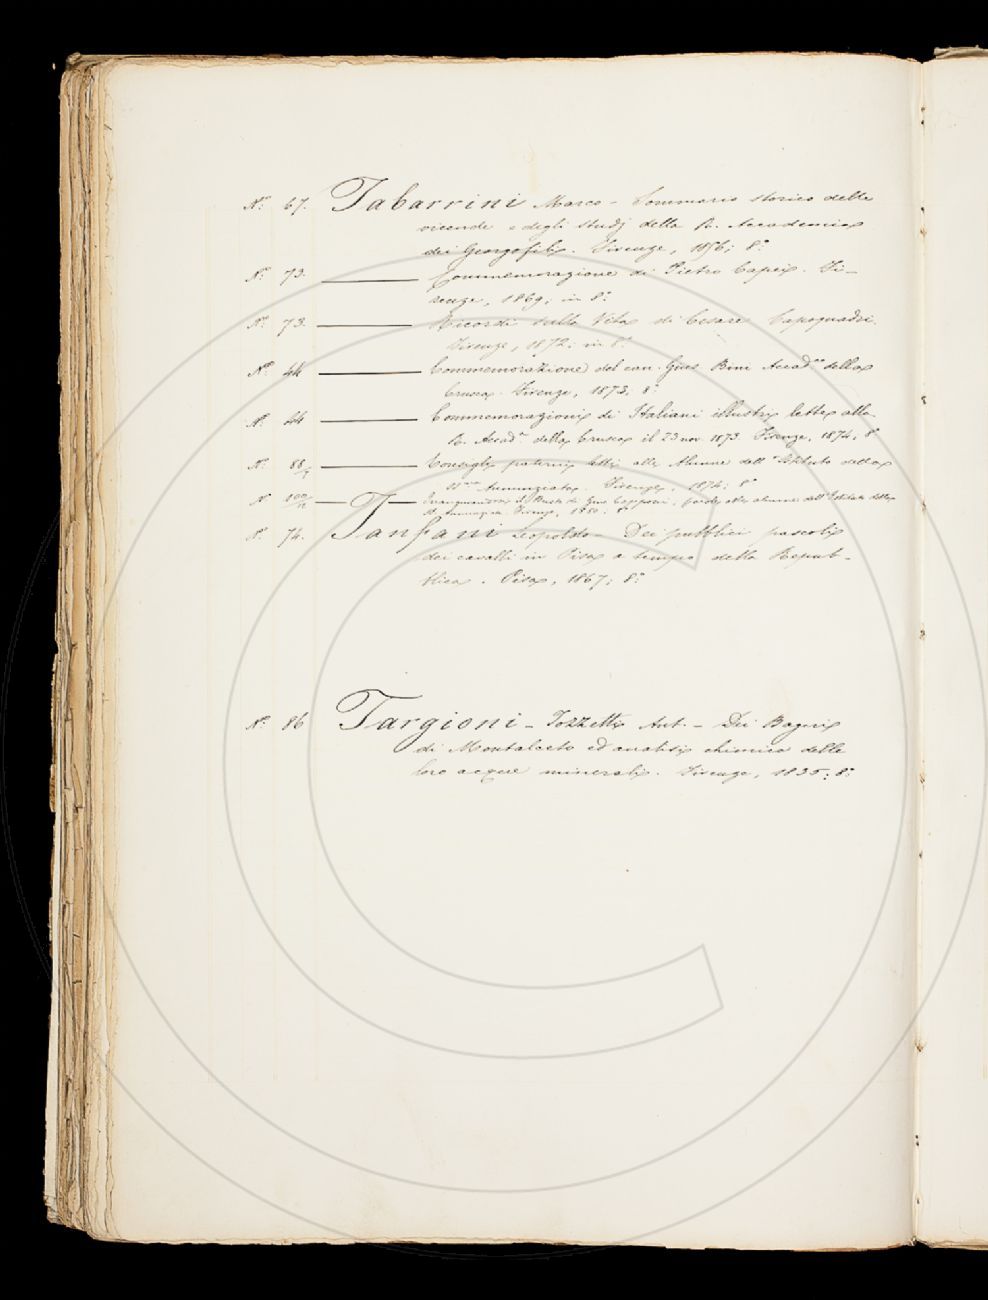 N.° 67. Tabarrini Marco - Sommario storico delle
vicende e degli studj della R. Accademia
dei Georgofili. Firenze, 1856; 8.°
N.° 73. Commemorazione di Pietro Capei. Fi-
renze, 1869, in 8.°
N.° 73. Ricordi sulla Vita di Cesare Capoquadri.
Firenze, 1872; in 8.°
N.° 44 Commemorazione del can. Gius. Bini Accad.co della
Crusca. Firenze, 1873; 8.°
N.° 44 Commemorazioni di Italiani illustri lette alla
R. Accad.a della Crusca il 23 nov. 1873. Firenze, 1874; 8.°
N.° 88/7 Consigli paterni letti alle Alunne dell' Istituto della
SS.ma Annunziata. Firenze, 1874; 8.°
N.° 100/12 Inaugurandosi il Busto di Gino Capponi. Parole alle alunne dell' Istituto della
SS. Annunziata. Firenze, 1880; 8.°
N.° 74. Tanfani Leopoldo - Dei pubblici pascoli
dei cavalli in Pisa a tempo della Repub-
blica. Pisa, 1867; 8.°
N.° 86 Targioni - Tozzetti Ant. - Dei Bagni
di Montalceto ed analisi chimica delle
loro acque minerali. Firenze, 1835; 8.°